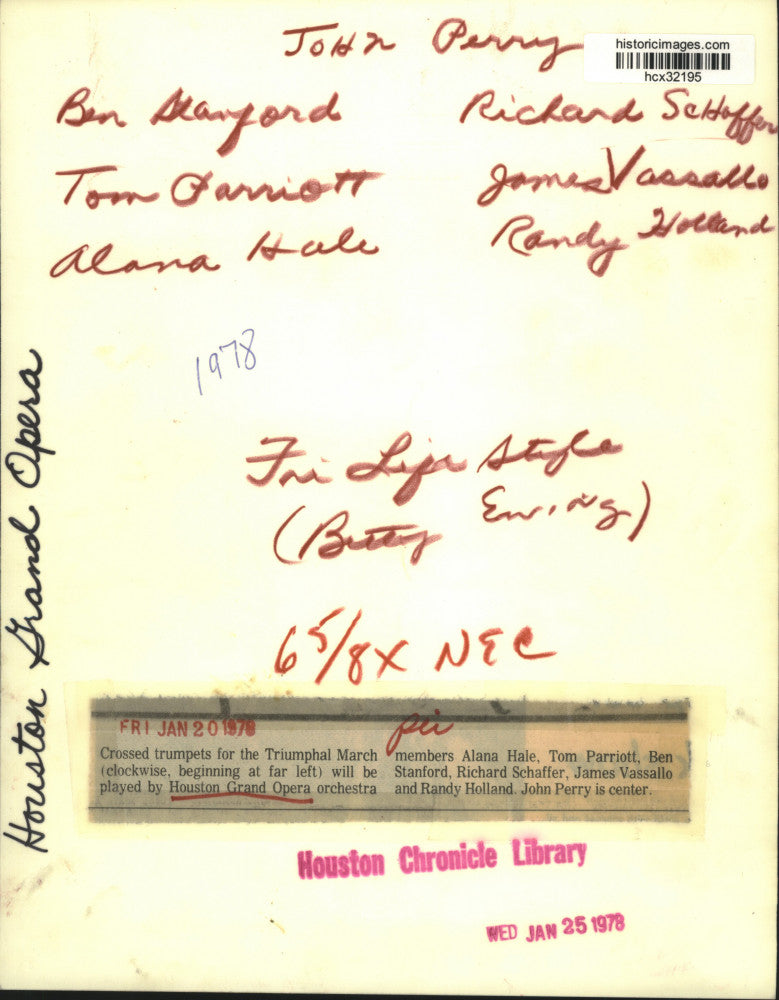 John Perry
historicimages.com
hcx32195
Ben Stanford
Richard Schaffer
Tom Parriott
James Vassallo
Alana Hale
Randy Holland
1978
Houston Grand Opera
Fri Life Style
(Betty Ewing)
6 5/8 X NEC
FRI JAN 20 1978
per
Crossed trumpets for the Triumphal March
(clockwise, beginning at far left) will be
played by Houston Grand Opera orchestra
members Alana Hale, Tom Parriott, Ben
Stanford, Richard Schaffer, James Vassallo
and Randy Holland. John Perry is center.
Houston Chronicle Library
WED JAN 25 1978